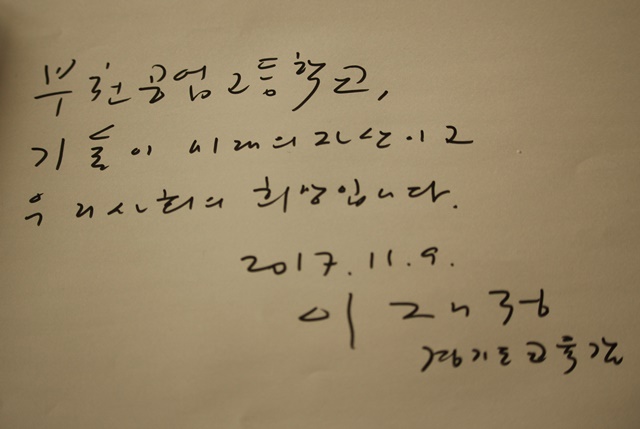 부천공업고등학교,
기술이 미래의 자산이고
우리 사회의 희망입니다.
2017.11.9.
이재정
경기도교육감